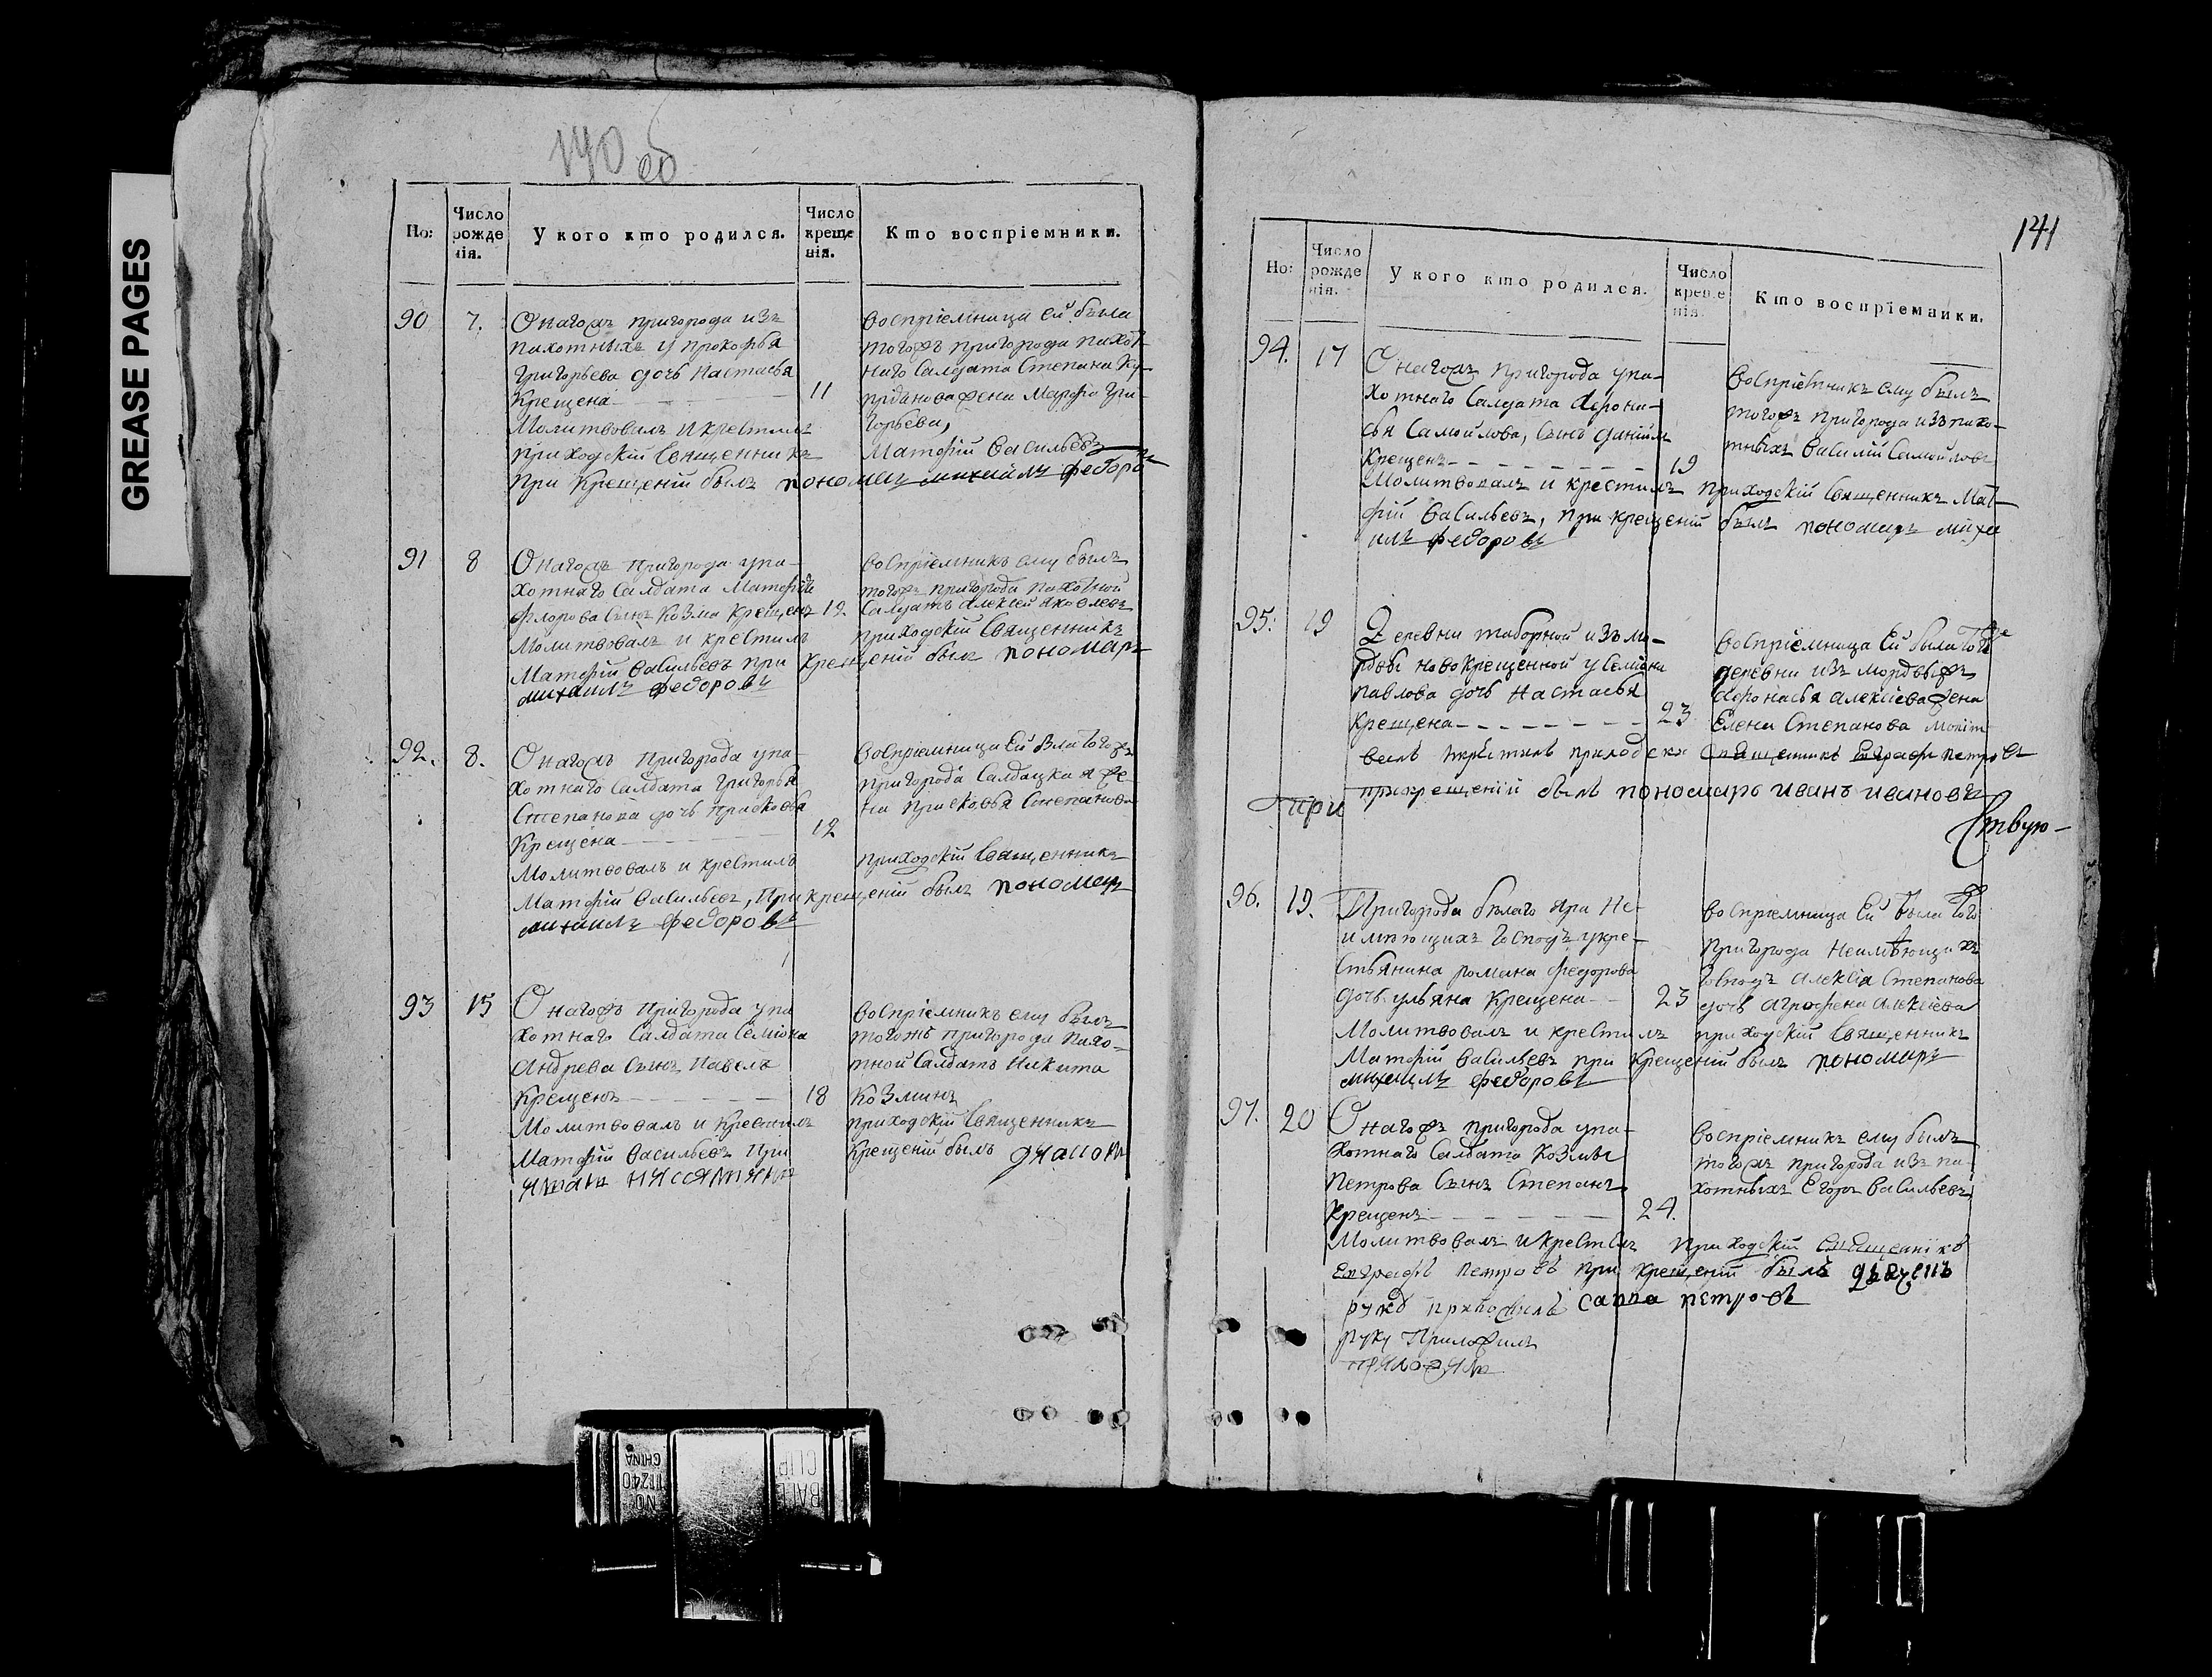 GREASE PAGES
140 об
Но:
Число рожденія.
У кого кто родился.
Число крещенія.
Кто воспріемники.
90
7.
Онагожъ пригорода изъ
пахотныхъ у прокофья
григорьева дочь настасья
крещена
11
Молитвовалъ и крестилъ
приходскій Священникъ
при крещеній былъ пономарь михайлъ федоровъ
воспріемница ей была
тогожъ пригорода пахот-
наго Салдата Степана
жена Марфа гри-
горьева,
Матфій Васильевъ
91
8
Онагожъ пригорода упа-
хотнаго Салдата Матфія
флорова Сынъ Козма крещенъ 12.
Молитвовалъ и крестилъ
Матфій Васильевъ при крещеній былъ пономарь
михаилъ федоровъ
воспріемникъ ему былъ
тогожъ пригорода пахотной
Салдатъ Алексей Яковлевъ
приходскій Священникъ
92.
8.
Онагожъ Пригорода упа-
хотнаго Салдата Григорья
Степанова дочь прасковья
крещена
12
Молитвовалъ и крестилъ
Матфій Васильевъ, При крещеній былъ пономарь
михаилъ федоровъ
воспріемница Ей была тогожъ
пригорода Салдацкая же-
на прасковья Степанова
приходскій Священникъ
93
15
Онагожъ Пригорода упа
хотнаго Салдата Семіона
Андрева Сынъ Павелъ
крещенъ
18
Молитвовалъ и Крестилъ
Матфій Васильевъ При
воспріемникъ ему былъ
тогожъ пригорода пахо-
тной Салдатъ Никита
Козминъ
приходскій Священникъ
Крещеній былъ
141
Но:
Число рожденія.
У кого кто родился.
Число крещенія.
Кто воспріемники.
94.
17
Онагожъ пригорода упа-
хотнаго Салдата Афона-
сья Самойлова, Сынъ даніилъ
Крещенъ
19
Молитвовалъ и крестилъ приходскій Священникъ Мат-
фій Васильевъ, при крещеній былъ пономарь миха
илъ федоровъ
воспріемникъ ему былъ
тогожъ пригорода изъ пахо-
тныхъ Василій Самойловъ
95.
19
Деревни таборной изъ мо-
рдвы новокрещенной у Семіона
павлова дочь настасья
крещена
23
воспріемница Ей была тойже
деревни изъ мордвы
Афонасья алексіева жена
Елена Степанова молит
валъ икрестилъ приходской священникъ Евграфъ петровъ
при
прикрещеній былъ пономарь иванъ ивановъ
Ствую-
96.
19.
Пригорода бѣлаго яра Не-
имѣющихъ господъ укре-
стьянина романа федорова
дочь ульяна крещена
23
Молитвовалъ и крестилъ приходскій Священникъ
Матфій Васильевъ при крещеній былъ пономарь
михаилъ федоровъ
воспріемница Ей была того
пригорода неимѣющихъ
господъ алексія Степанова
дочь агрофена алексіева
97.
20
Онагожъ пригорода упа-
хотнаго Салдата Козмы
Петрова Сынъ Степанъ
крещенъ
24.
Молитвовалъ икрестилъ приходскій священникъ
Евграфъ петровъ при крещеній былъ
руку приложилъ савва петровъ
руку Приложилъ
воспріемникъ ему былъ
тогожъ пригорода изъ па-
хотныхъ Егоръ Васильевъ
BALL CLIP
NO 11240
CHINA